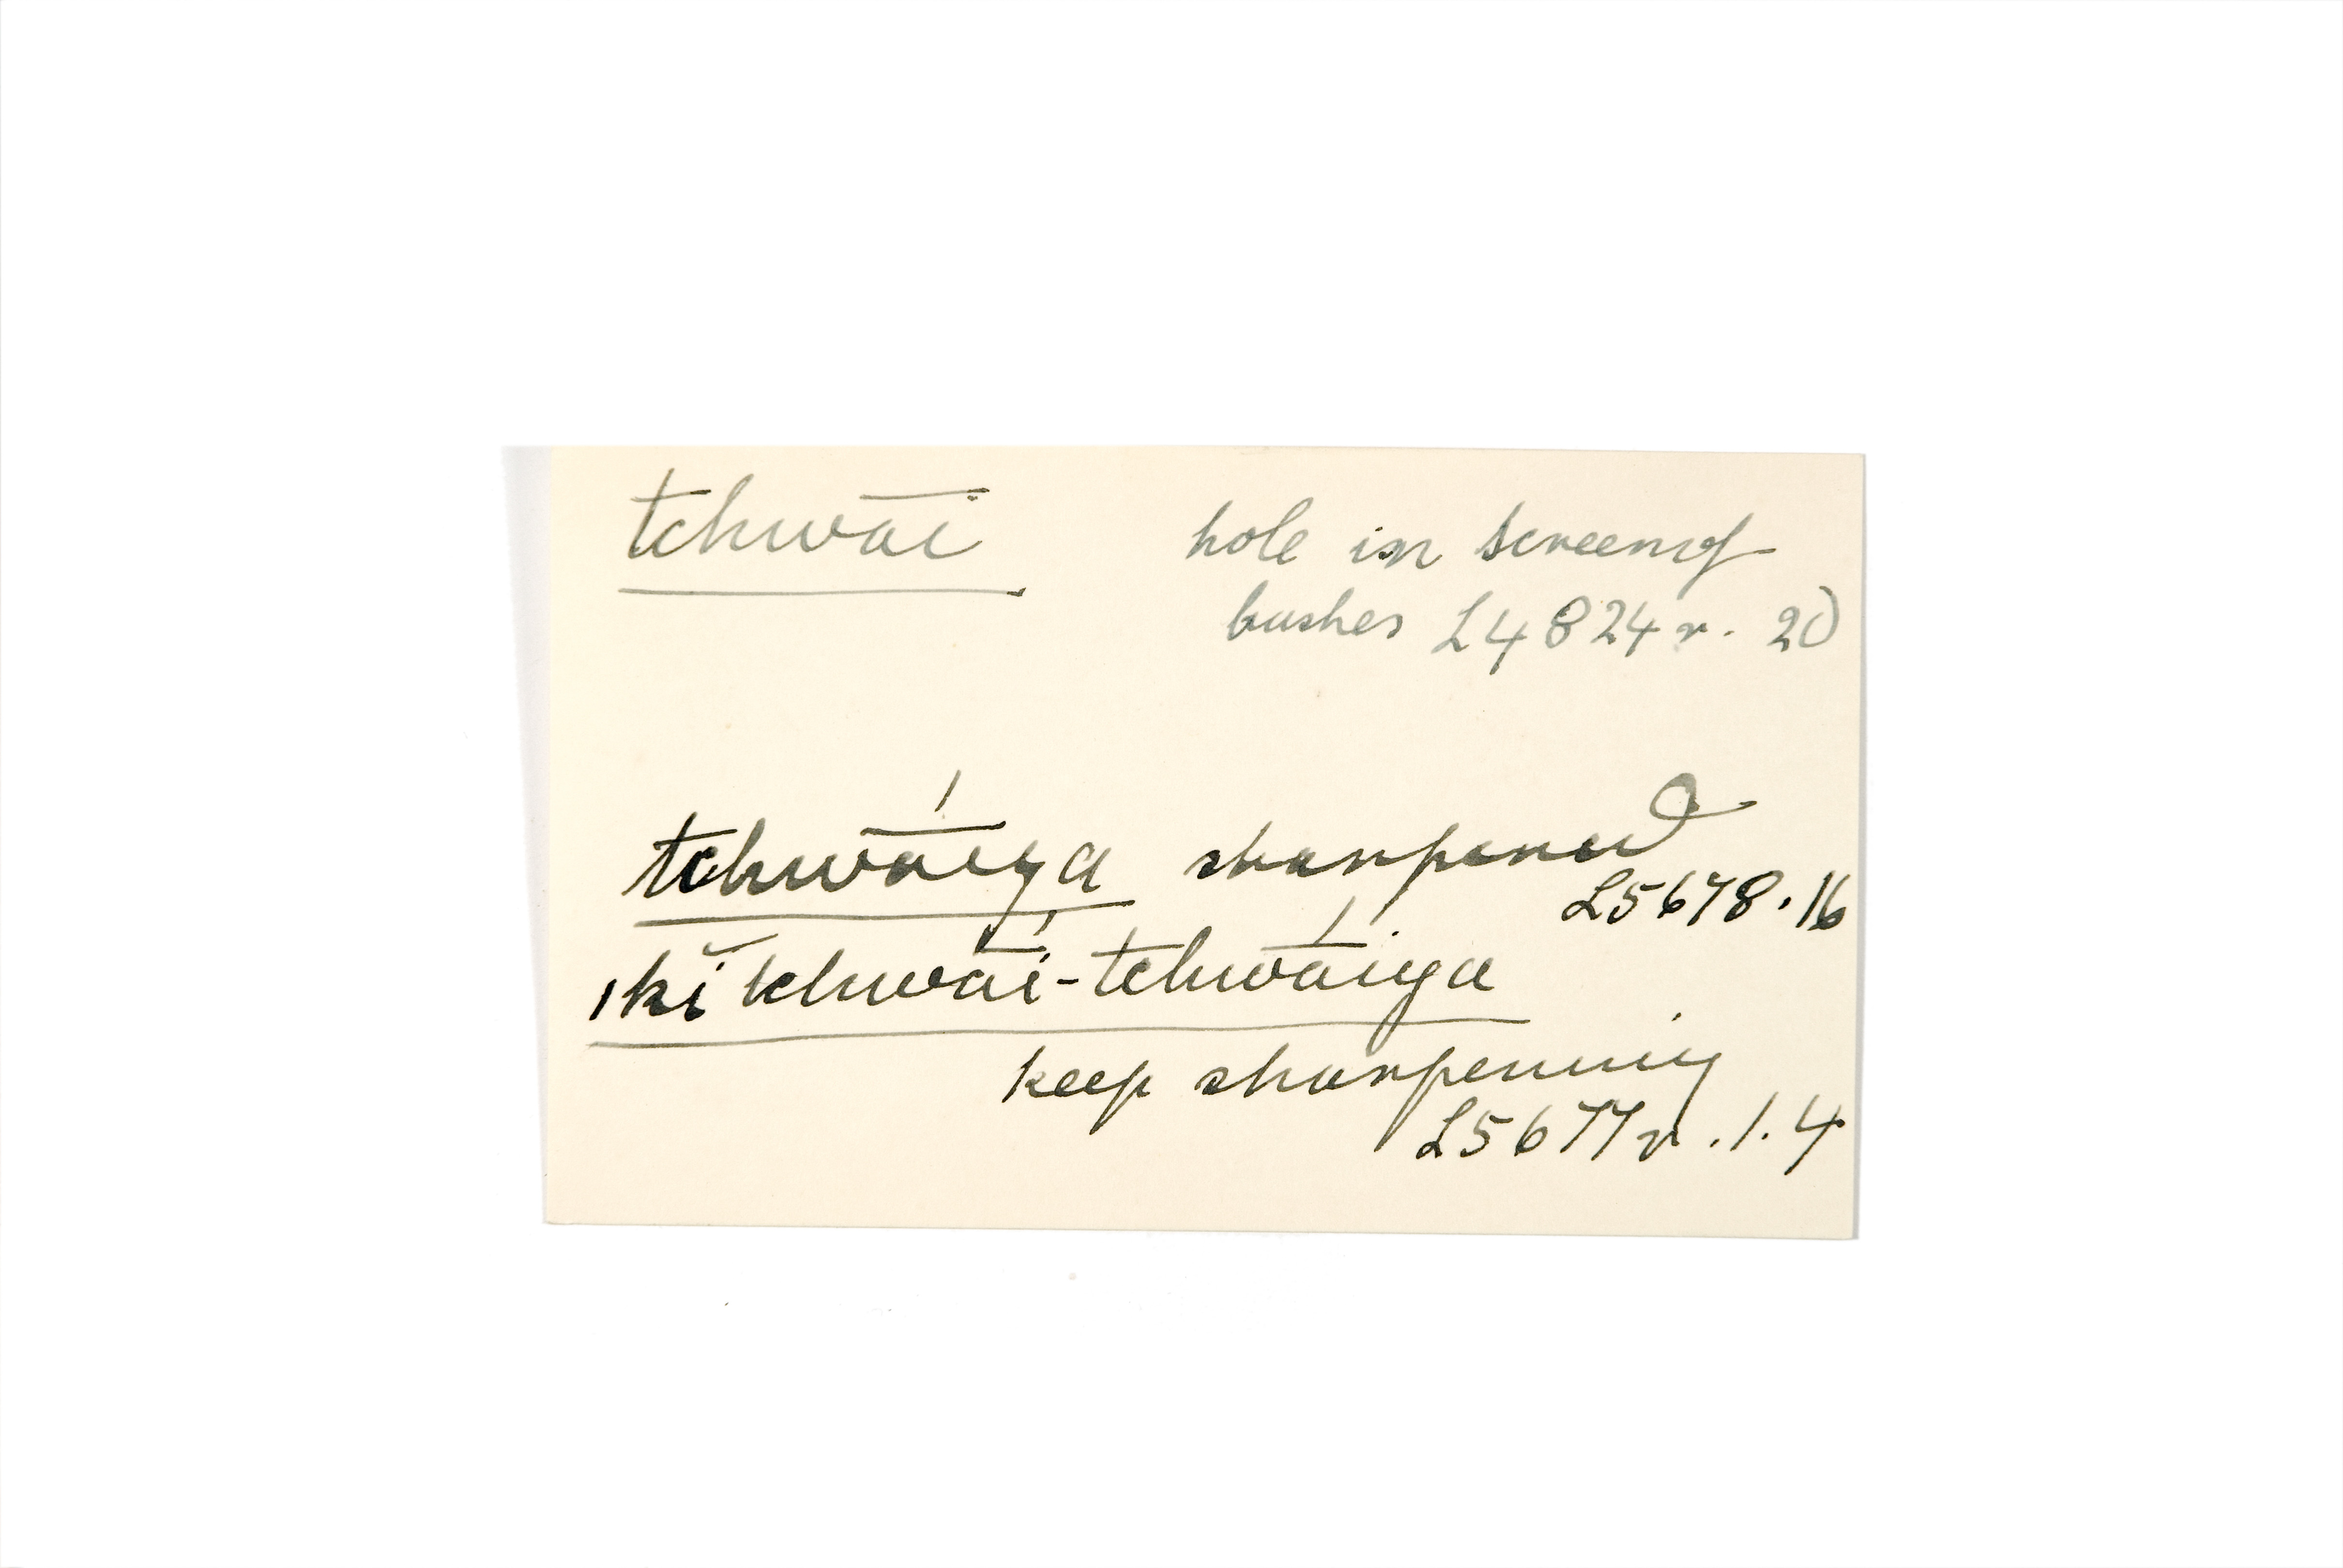 tchwāī hole in screen of
bushes L4824v. 20
tchwā́īya sharpened
L5678.16
ıkĭ tchwā́ī-tchwā́īya
keep sharpening
L5677v.1.4